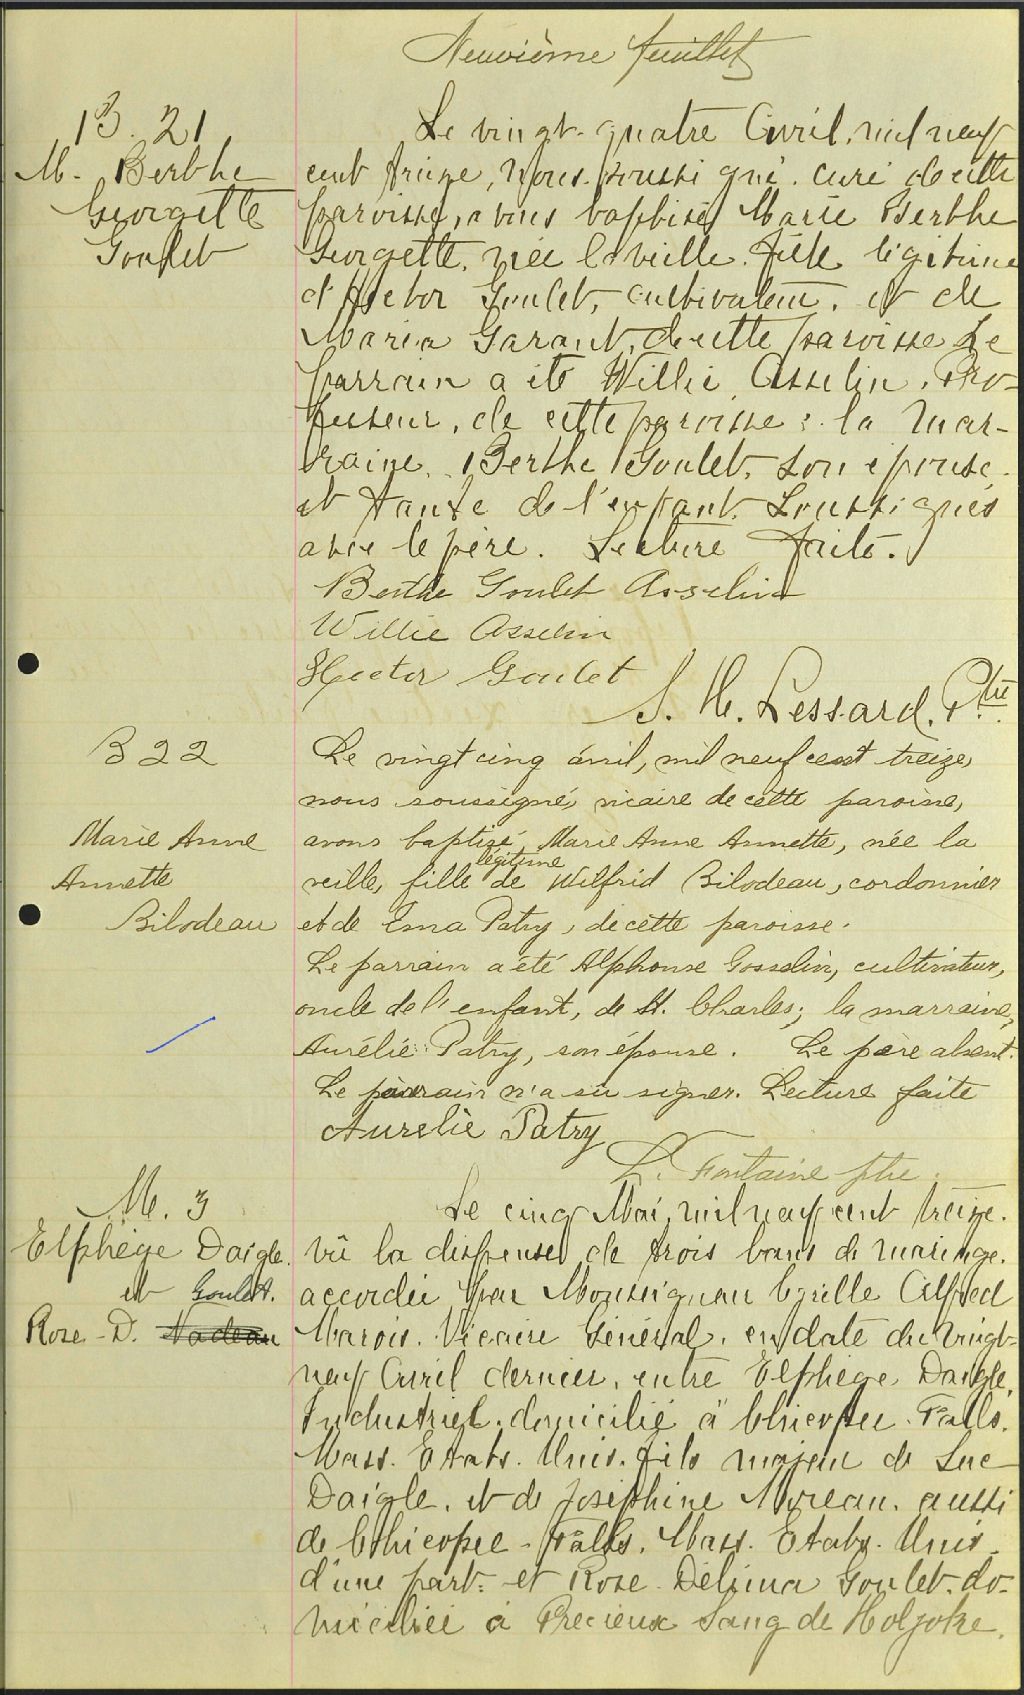 Neuvième feuillet
B. 21
M. Berthe
Georgette
Goulet
Le vingt-quatre Avril, mil neuf
cent treize, nous soussigné, curé de cette
paroisse, avons baptisé Marie Berthe
Georgette, née la veille, fille légitime
d'Hector Goulet, cultivateur, et de
Maria Garant, de cette paroisse. Le
parrain a été Willie Asselin, Pro-
fesseur, de cette paroisse; la mar-
raine, Berthe Goulet, son épouse
et tante de l'enfant, soussignés
avec le père. Lecture faite.
Berthe Goulet Asselin
Willie Asselin
Hector Goulet
S. H. Lessard, Ptre
B 22
Marie Anne
Annette
Bilodeau
Le vingt cinq avril, mil neuf cent treize,
nous soussigné, vicaire de cette paroisse,
avons baptisé, Marie Anne Annette, née la
veille, fille légitime de Wilfrid Bilodeau, cordonnier
et de Ema Patry, de cette paroisse.
Le parrain a été Alphonse Gosselin, cultivateur,
oncle de l'enfant, de St. Charles; la marraine,
Aurélie Patry, son épouse. Le père absent.
Le parrain n'a su signer. Lecture faite
Aurelie Patry
L. Fontaine ptre.
M. 3
Elphège Daigle.
et Goulet.
Rose-D. Nadeau
Le cinq Mai, mil neuf cent treize.
vû la dispense de trois bans de mariage.
accordée par Monseigneur Cyrille Alfred
Marois. Vicaire Général, en date du vingt-
neuf Avril dernier, entre Elphège Daigle,
Industriel, domicilié à Chicopee-Falls.
Mass. Etats-Unis, fils majeur de Luc
Daigle, et de Joséphine Moreau, aussi
de Chicopee-Falls. Mass. Etats-Unis.
d'une part: et Rose-Délima Goulet, do-
miciliée à Precieux Sang de Holyoke,